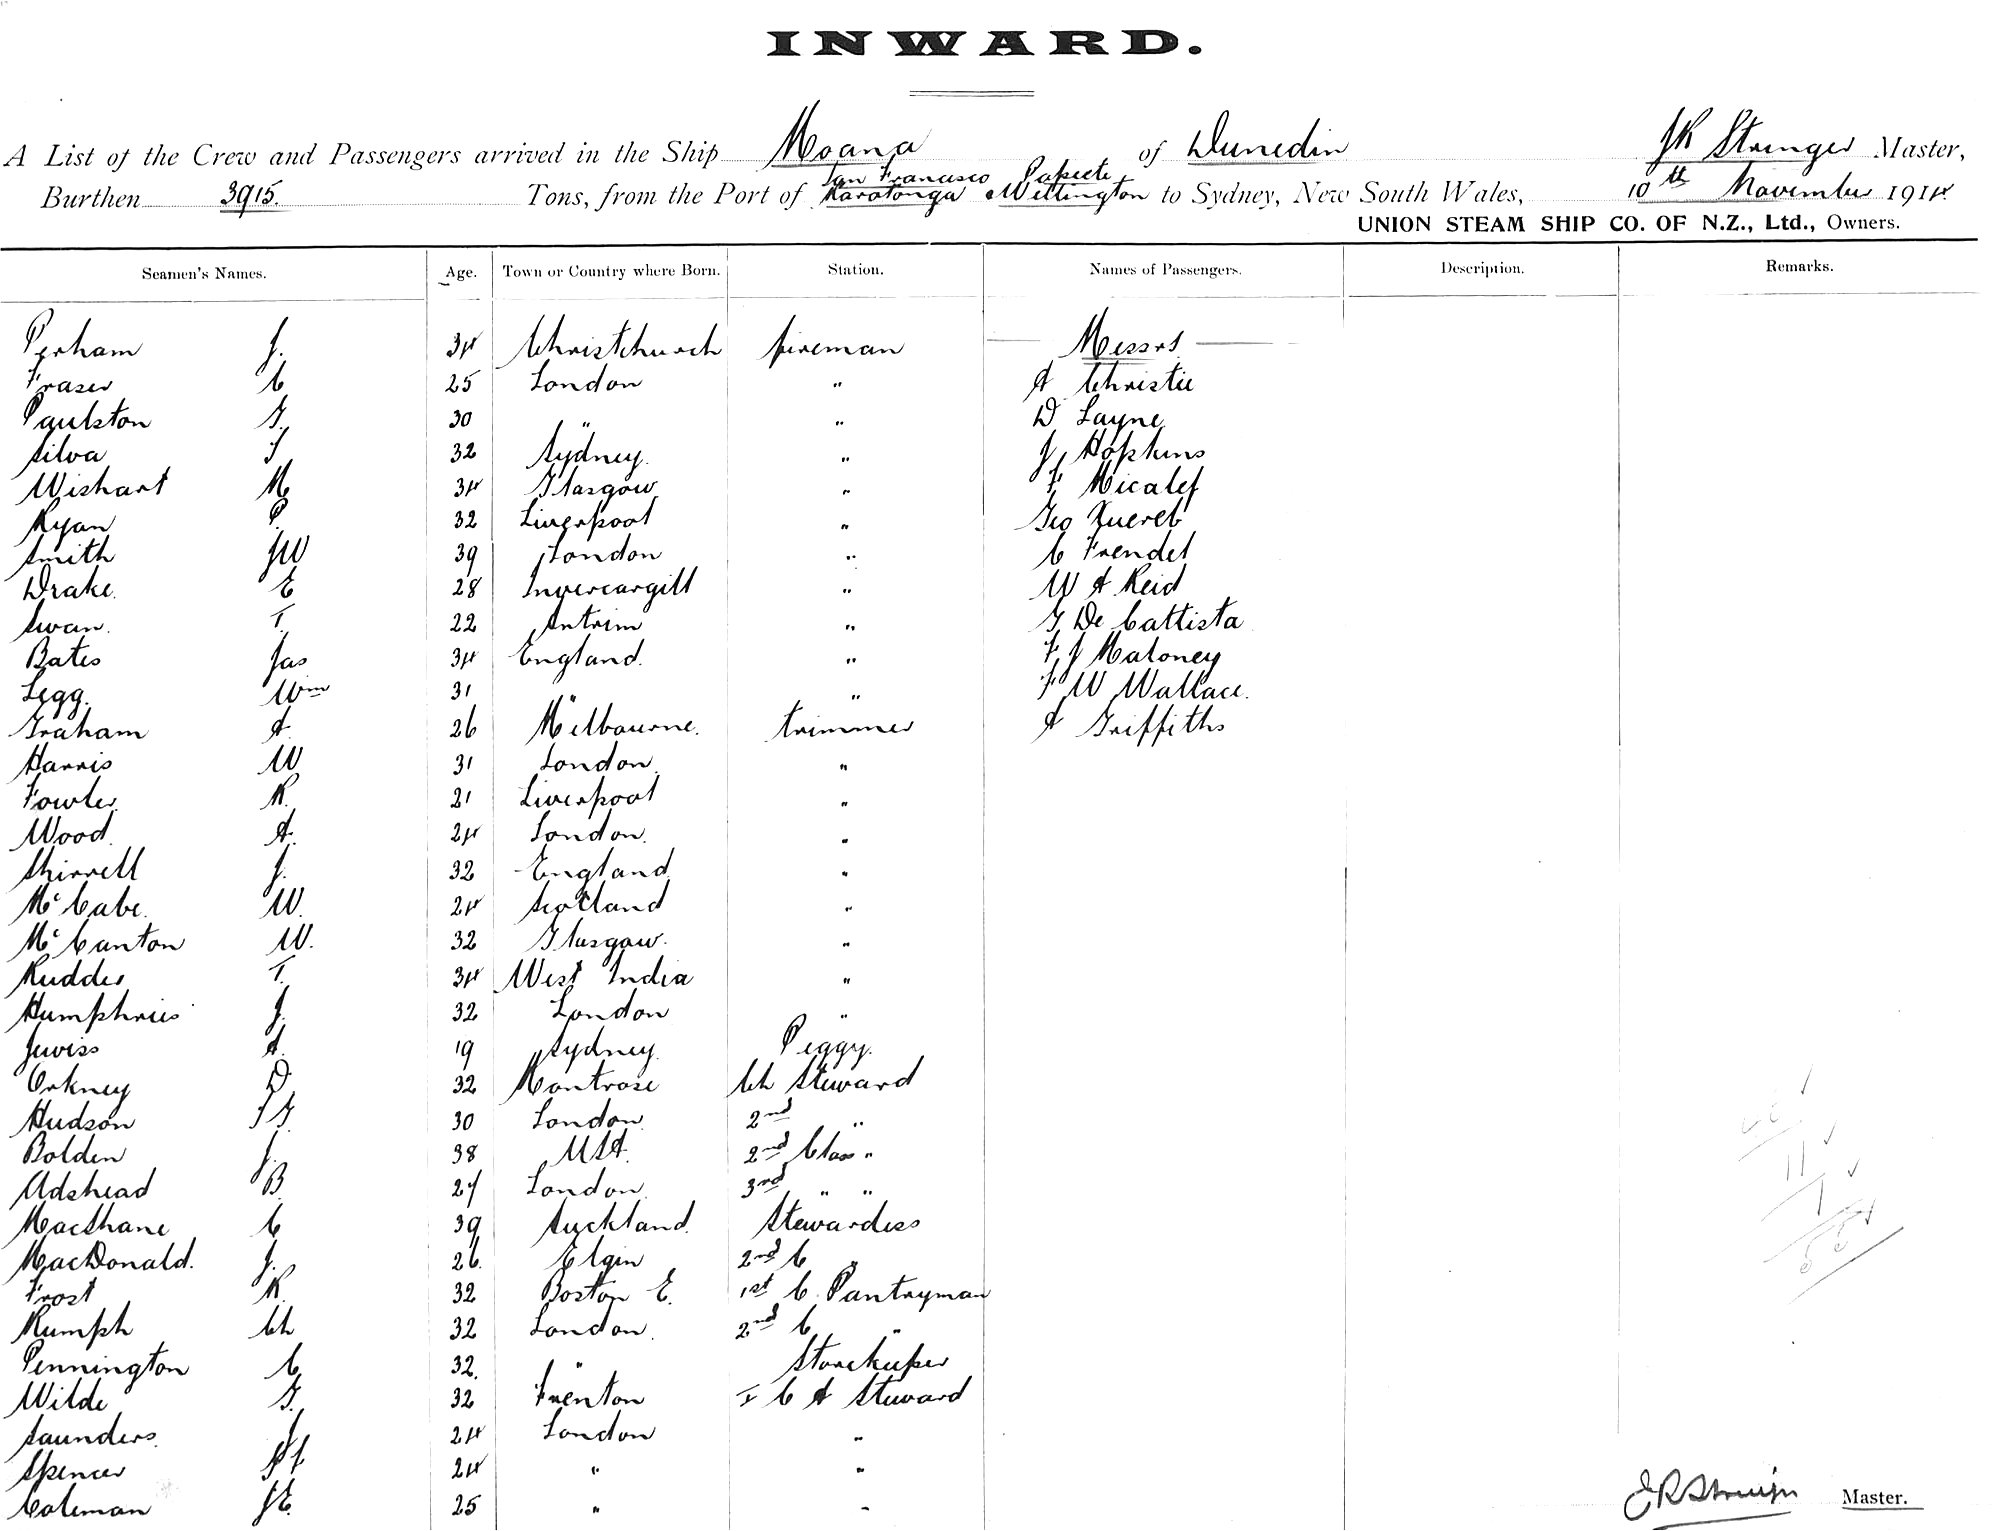 INWARD.
A List of the Crew and Passengers arrived in the Ship Moana of Dunedin JR Stringer Master,
San Francisco Papeete
Burthen 3915. Tons, from the Port of Raratonga Wellington to Sydney, New South Wales, 10th November 1914
UNION STEAM SHIP CO. OF N.Z., Ltd., Owners.
Seamen's Names. Age. Town or Country where Born. Station. Names of Passengers. Description. Remarks.
Perham J. 34 Christchurch fireman Messrs
Fraser C 25 London " A Christie
Paulston G. 30 " " D Layne
Silva J 32 Sydney. " J Hopkins
Wishart M 34 Glasgow " F Micalef
Ryan P. 32 Liverpool " Geo Xuereb
Smith JW 39 London " C Frendel
Drake. E 28 Invercargill " W A Reid
Swan. T. 22 Antrim " G De Cattista
Bates Jas 34 England. " F J Maloney
Legg. Wm 31 " " F W Wallace.
Graham A. 26 Melbourne. trimmer A Griffiths
Harris W 31 London. "
Fowler R. 21 Liverpool "
Wood. A. 24 London. "
Shirrell J. 32 England. "
McCabe. W. 24 Scotland "
McCanton W. 32 Glasgow. "
Rudder T. 34 West India "
Humphries J. 32 London "
Jewiss A. 19 Sydney. Peggy.
Orkney D. 32 Montrose Ch Steward
Hudson J G. 30 London. 2nd "
Bolden J. 38 USA. 2nd Class "
Adshead B. 27 London. 3rd " "
MacShane C 39 Auckland. Stewardess
MacDonald. J. 26. Elgin 2nd C "
Frost R. 32 Boston E. 1st C. Pantryman
Rumph Ch 32 London. 2nd C "
Pennington C 32. " Storekeeper
Wilde G. 32 Frenton F C A Steward
Saunders. J 24 London "
Spencer 24 " "
Coleman JE. 25 " "
JR Stringer Master.